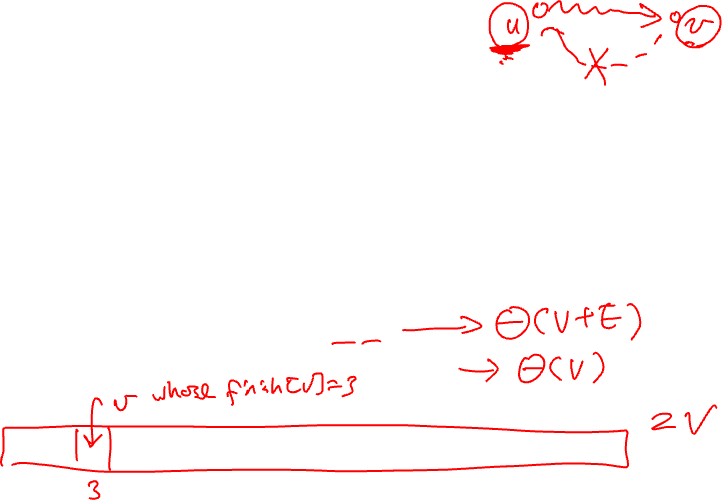 u v
-- → Θ(V+E)
→ Θ(V)
v whose finish[v]=3
2V
3